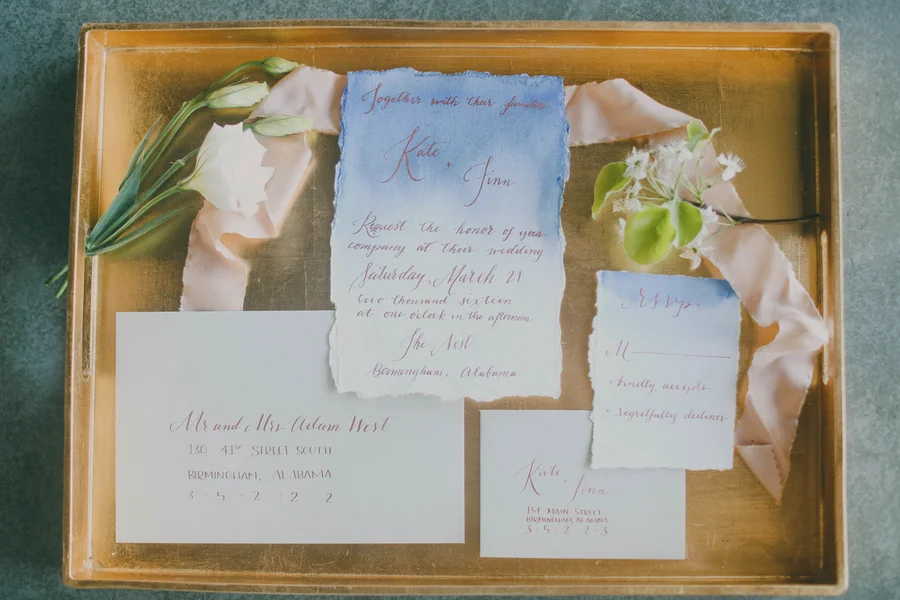 Together with their families
Kate
+
Finn
Request the honor of your
company at their wedding
Saturday, March 21
two thousand sixteen
at one o'clock in the afternoon
The Nest
Birmingham, Alabama
Rsvp
M
kindly accepts
regretfully declines
Mr and Mrs. Adam West
130 41st STREET SOUTH
BIRMINGHAM, ALABAMA
3 - 5 - 2 - 2 - 2
Kate + Finn
154 MAIN STREET
BIRMINGHAM, ALABAMA
3-5-2-2-3